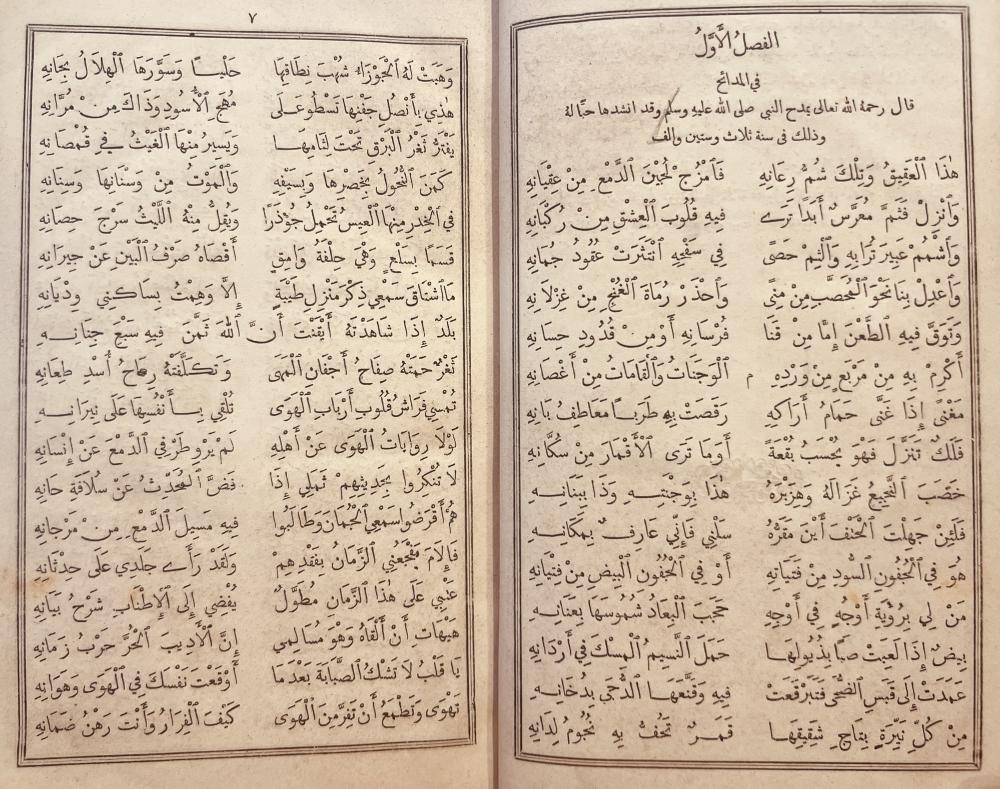 الفصلُ الْأَوَّلُ
في المدائح
قال رحمهُ الله تعالى يمدح النبي صلى الله عليهِ وسلم وقد انشدها حبًّا لهُ
وذلك في سنة ثلاث وستين والف
هٰذَا الْعَقِيقُ وَتِلْكَ شُمُّ رِعَانِهِ فَأَمْزُجْ لُجَيْنَ الدَّمْعِ مِنْ عِقْيَانِهِ
وَأَنْزِلْ فَثَمَّ مُعَرَّسٌ أَبَدًا تَرَى فِيهِ قُلُوبَ الْعِشْقِ مِنْ رُكْبَانِهِ
وَأَشْمُمْ عَبِيرَ تُرَابِهِ وَالْثِمْ حَصًى فِي سَفْحِهِ انْتَثَرَتْ عُقُودُ جُمَانِهِ
وَأَعْدِلْ بِنَا نَحْوَ الْمُحَصَّبِ مِنْ مِنًى وَأَحْذَرْ رُمَاةَ الْغُنْجِ مِنْ غِزْلَانِهِ
وَتَوَقَّ فِيهِ الطَّعْنَ إِمَّا مِنْ قَنَا فُرْسَانِهِ أَوْ مِنْ قُدُودِ حِسَانِهِ
أَكْرِمْ بِهِ مِنْ مَرْبَعٍ مِنْ وَرْدِهِ م الْوَجَنَاتُ وَالْقَامَاتُ مِنْ أَغْصَانِهِ
مَغْنًى إِذَا غَنَّى حَمَامُ أَرَاكِهِ رَقَصَتْ بِهِ طَرَبًا مَعَاطِفُ بَانِهِ
فَلَكٌ تَنَزَّلَ فَهْوَ يُحْسَبُ بُقْعَةً أَوَمَا تَرَى الْأَقْمَارَ مِنْ سُكَّانِهِ
خَضَبَ النَّجِيعُ غَزَالَهُ وَهِزَبْرَهُ هٰذَا بِوَجْنَتِهِ وَذَا بِبَنَانِهِ
فَلَئِنْ جَهِلْتَ الْحَتْفَ أَيْنَ مَقَرُّهُ سَلْنِي فَإِنِّي عَارِفٌ بِمَكَانِهِ
هُوَ فِي الْجُفُونِ السُّودِ مِنْ فَتَيَاتِهِ أَوْ فِي الْجُفُونِ الْبِيضِ مِنْ فِتْيَانِهِ
مَنْ لِي بِرُؤْيَةِ أَوْجُهٍ فِي أَوْجِهِ حَجَبَ الْبِعَادُ شُمُوسَهَا بِعَنَانِهِ
بِيضٌ إِذَا لَعِبَتْ صَبًا بِذُيُولِهَا حَمَلَ النَّسِيمُ الْمِسْكَ فِي أَرْدَانِهِ
عَمَدَتْ إِلَى قَبَسِ الضُّحَى فَتَبَرْقَعَتْ فِيهِ وَقَنَّعَهَا الدُّجَى بِدُخَانِهِ
مِنْ كُلِّ نَيِّرَةٍ بِتَاجِ شَقِيقِهَا قَمَرٌ تَحُفُّ بِهِ نُجُومُ لِدَانِهِ
٧
وَهَبَتْ لَهُ الْجَوْزَاءُ شُهْبَ نِطَاقِهَا حَلْيًا وَسَوَّرَهَا الْهِلَالُ بِجَانِهِ
هٰذِي بِأَنْصُلِ جَفْنِهَا تَسْطُو عَلَى مُهَجِ الْأُسُودِ وَذَاكَ مِنْ مُرَّانِهِ
يَفْتَرُّ ثَغْرُ الْبَرْقِ تَحْتَ لِثَامِهَا وَيَسِيرُ مِنْهَا الْغَيْثُ فِي قُمْصَانِهِ
كَمَنَ النُّحُولُ بِخَصْرِهَا وَبِسَيْفِهِ وَالْمَوْتُ مِنْ وَسْنَانِهَا وَسِنَانِهِ
فِي الْخِدْرِ مِنْهَا الْعِيسُ تَحْمِلُ جُؤْذَرًا وَيُقِلُّ مِنْهُ اللَّيْثُ سَرْجَ حِصَانِهِ
قَسَمًا بِسَلْعٍ وَهْيَ حِلْفَةُ وَامِقٍ أَقْصَاهُ صَرْفُ الْبَيْنِ عَنْ جِيرَانِهِ
مَا اشْتَاقَ سَمْعِي ذِكْرَ مَنْزِلِ طَيْبَةٍ إِلَّا وَهِمْتُ بِسَاكِنِي وِدْيَانِهِ
بَلَدٌ إِذَا شَاهَدْتَهُ أَيْقَنْتَ أَنَّ اللهَ ثَمَّنَ فِيهِ سَبْعَ جِنَانِهِ
ثَغْرٌ حَمَتْهُ صِفَاحُ أَجْفَانِ الْمَهَى وَتَكَلَّفَتْهُ رِمَاحُ أُسْدِ طِعَانِهِ
تُمْسِي فَرَاشُ قُلُوبِ أَرْبَابِ الْهَوَى تُلْقِي بِأَنْفُسِهَا عَلَى نِيرَانِهِ
لَوْلَا رِوَايَاتُ الْهَوَى عَنْ أَهْلِهِ لَمْ يَرْوِ طَرْفِي الدَّمْعَ عَنْ إِنْسَانِهِ
لَا تُنْكِرُوا بِحَدِيثِهِمْ ثَمَلِي إِذَا فَضَّ الْمُحَدِّثُ عَنْ سُلَافَةِ حَانِهِ
هُمْ أَقْرَضُوا سَمْعِي الْجُمَانَ وَطَالَبُوا فِيهِ مَسِيلَ الدَّمْعِ مِنْ مَرْجَانِهِ
فَإِلَامَ يَفْجَعُنِي الزَّمَانُ بِفَقْدِهِمْ وَلَقَدْ رَأَى جَلَدِي عَلَى حِدْثَانِهِ
عَتْبِي عَلَى هٰذَا الزَّمَانِ مُطَوَّلٌ يُفْضِي إِلَى الْإِطْنَابِ شَرْحُ بَيَانِهِ
هَيْهَاتِ أَنْ أَلْقَاهُ وَهْوَ مُسَالِمِي إِنَّ الْأَدِيبَ الْحُرَّ حَرْبُ زَمَانِهِ
يَا قَلْبُ لَا تَشْكُ الصَّبَابَةَ بَعْدَمَا أَوْقَعْتَ نَفْسَكَ فِي الْهَوَى وَهَوَانِهِ
تَهْوَى وَتَطْمَعُ أَنْ تَفِرَّ مِنَ الْهَوَى كَيْفَ الْفِرَارُ وَأَنْتَ رَهْنُ ضَمَانِهِ